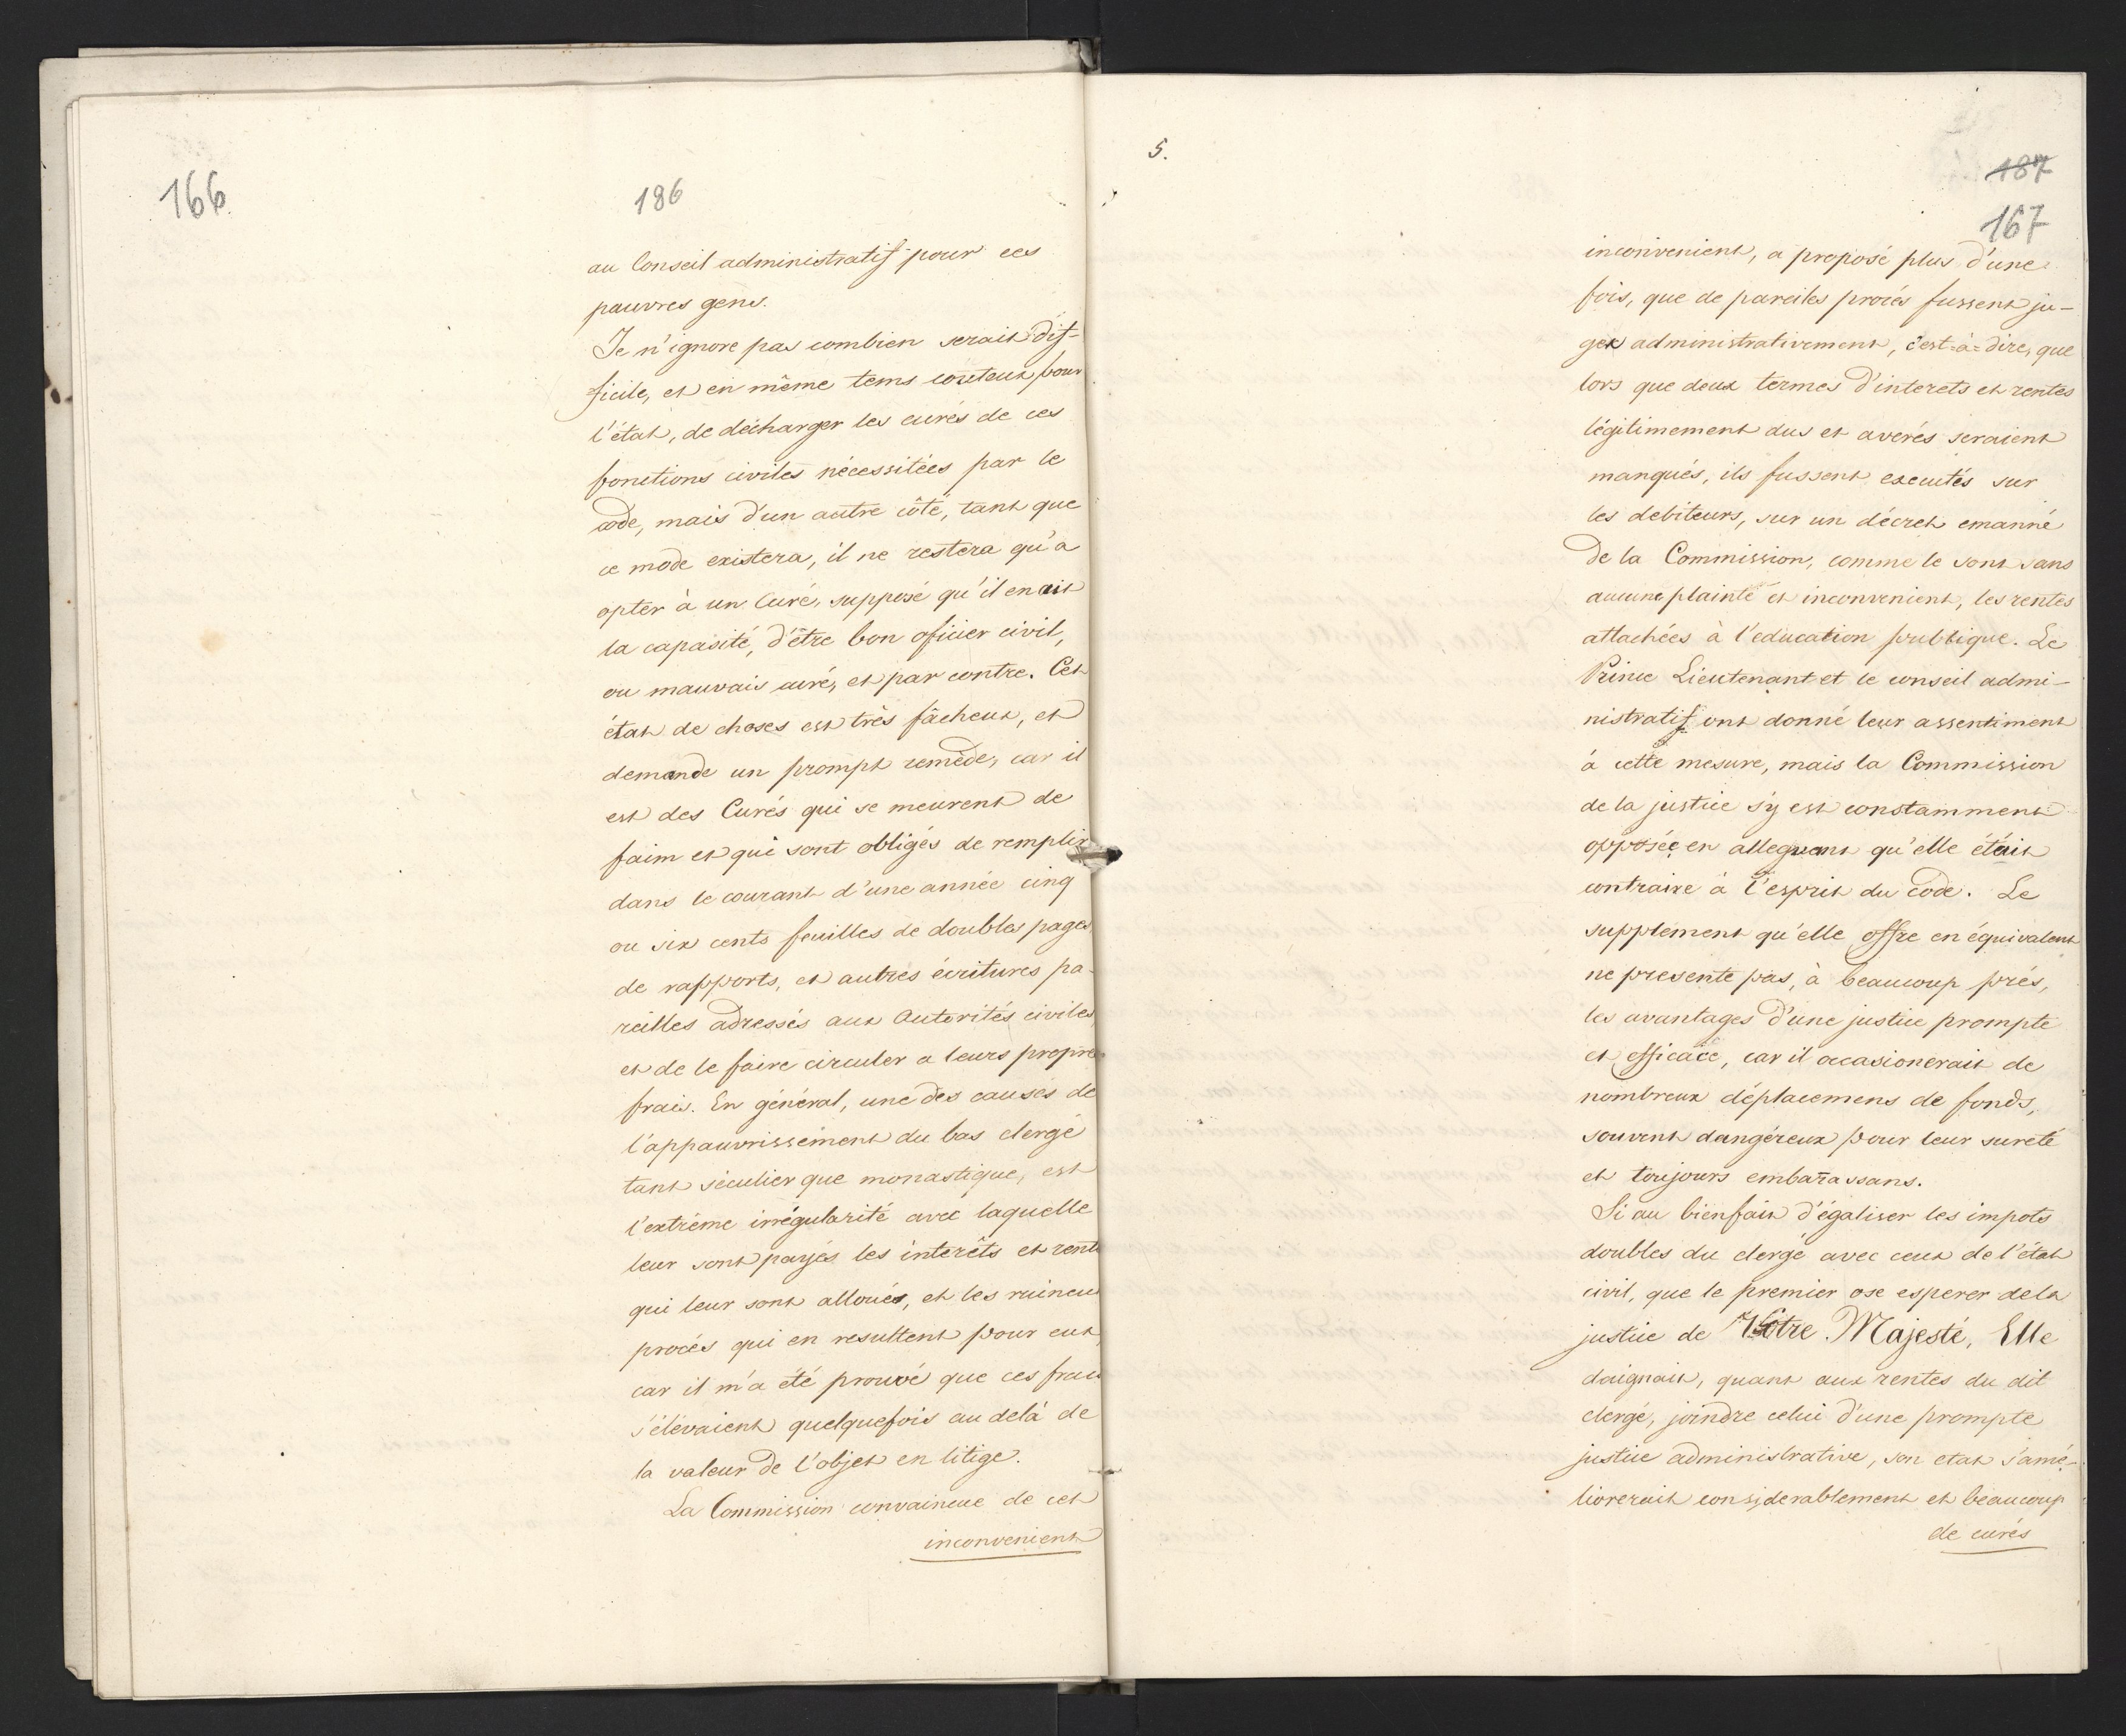 166
186
au Conseil administratif pour ces
pauvres gens.
Je n'ignore pas combien serait dif-
ficile, et en même tems couteux pour
l'état, de décharger les curés de ces
fonctions civiles nécessitées par le
code, mais d'un autre côté, tant que
ce mode existera, il ne restera qu'a
opter à un Curé, supposé qu'il en ait
la capasité, d'être bon oficier civil,
ou mauvais curé, et par contre. Cet
état de choses est très fâcheux, et
demande un prompt remède, car il
est des Curés qui se meurent de
faim et qui sont obligés de remplir
dans le courant d'une année cinq
ou six cents feuilles de doubles pages
de rapports, et autres écritures pa-
reilles adressés aux Autorités civiles
et de le faire circuler a leurs propres
frais. En général, une des causes de
l'appauvrissement du bas clergé
tant séculier que monastique, est
l'extrême irrégularité avec laquelle
leur sont payés les intérêts et rente
qui leur sont alloués, et les ruineux
procés qui en resultent pour eux,
car il m'a été prouvé que ces frais
s'élévaient quelquefois au delà de
la valeur de l'objet en litige.
La Commission convaincue de cet
inconvenient
5.
187
167
inconvenient, a proposé plus d'une
fois, que de pareils procés fussent ju-
gés administrativement, c'est-à-dire, que
lors que deux termes d'interets et rentes
légitimement dus et averés seraient
manqués, ils fussent executés sur
les debiteurs, sur un décret emanné
de la Commission, comme le sont sans
aucune plainte et inconvenient, les rentes
attachées à l'education publique. Le
Prince Lieutenant et le conseil admi-
nistratif ont donné leur assentiment
à cette mesure, mais la Commission
de la justice s'y est constamment
opposée en alleguant qu'elle était
contraire à l'esprit du code. Le
supplement qu'elle offre en équivalent
ne presente pas, à beaucoup près,
les avantages d'une justice prompte
et efficace, car il occasionerait de
nombreux déplacemens de fonds,
souvent dangéreux pour leur sureté
et toujours embarassans.
Si au bienfait d'égaliser les impots
doubles du clergé avec ceux de l'état
civil, que le premier ose esperer de la
justice de Vôtre Majesté, Elle
daignait, quant aux rentes du dit
clergé, joindre celui d'une prompte
justice administrative, son etat s'amé-
liorerait considerablement et beaucoup
de curés